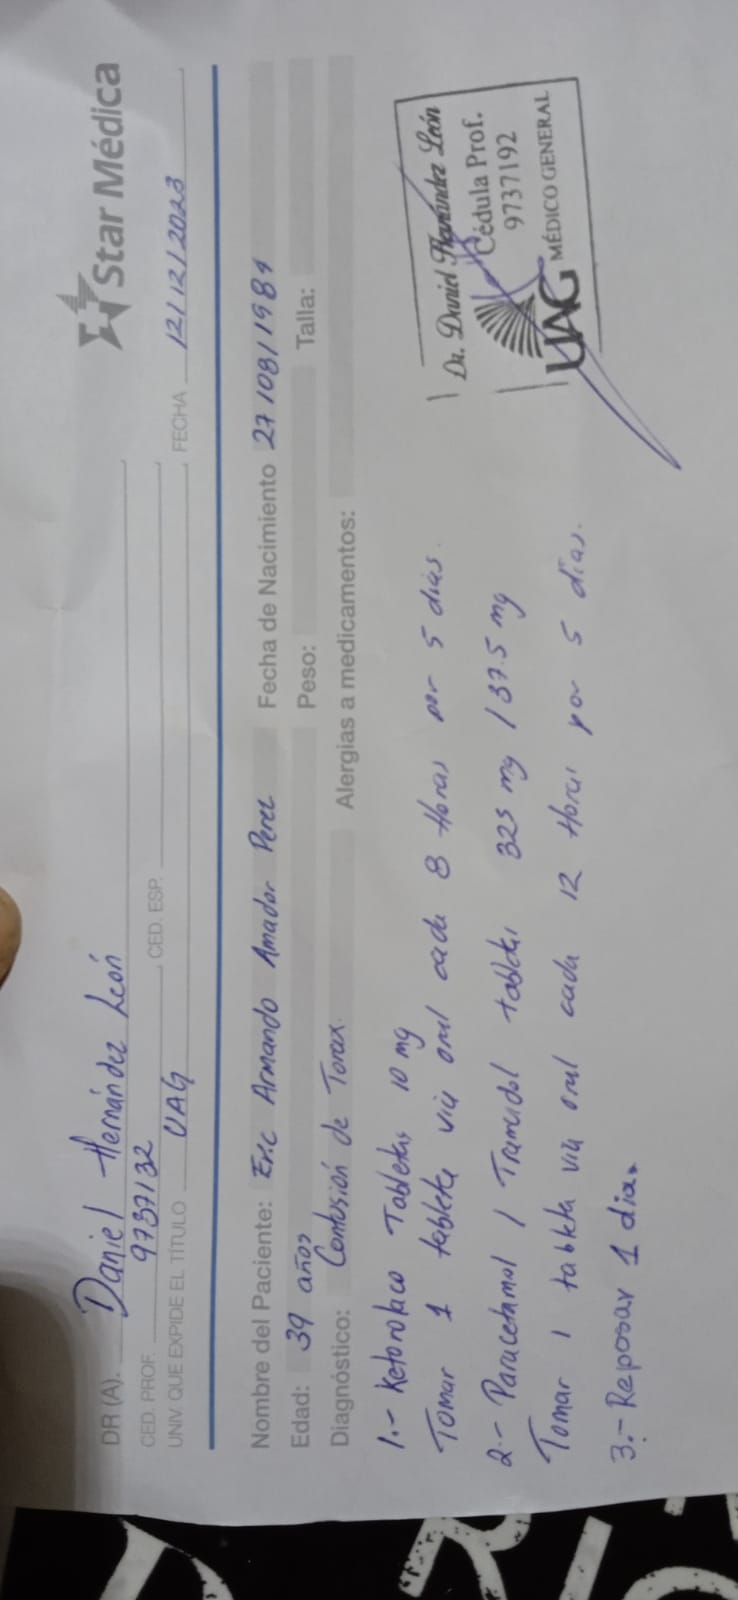 Star Médica
DR (A). Daniel Hernández León
CED. PROF. 9737132 CED. ESP.
UNIV. QUE EXPIDE EL TÍTULO UAG FECHA 12/12/2023
Nombre del Paciente: Eric Armando Amador Perez Fecha de Nacimiento 27/08/1984
Edad: 39 años Peso: Talla:
Diagnóstico: Contusión de Torax. Alergias a medicamentos:
1.- Ketorolaco Tabletas 10 mg
Tomar 1 tableta via oral cada 8 Horas por 5 dias.
2.- Paracetamol / Tramadol tabletas 325 mg / 37.5 mg
Tomar 1 tableta via oral cada 12 Horas por 5 dias.
3.- Reposar 1 dia.
Dr. Daniel Hernández León
Cédula Prof.
9737192
UAG MÉDICO GENERAL